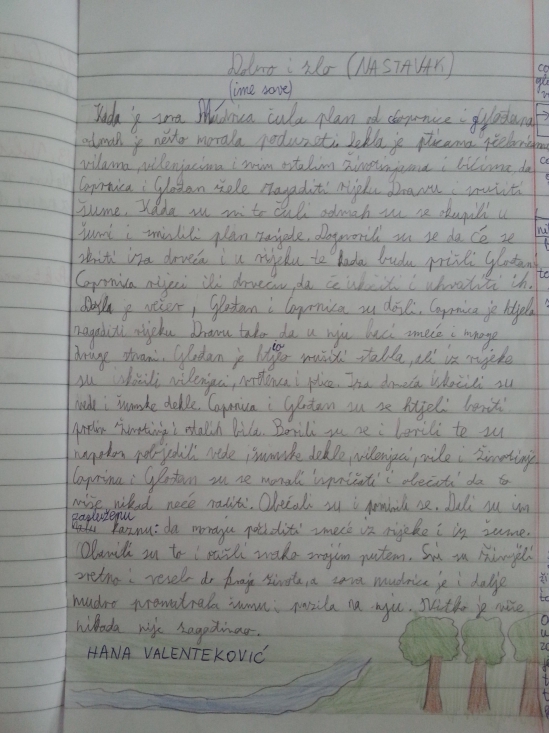 Dobro i zlo (NASTAVAK)
(ime sove)
Kada je sova Mudrica čula plan od Coprnice i Glođana
odmah je nešto morala poduzeti. Rekla je pticama, pčelicama
vilama, vilenjacima i svim ostalim životinjama i bićima, da
Coprnica i Glođan žele zagaditi rijeku Dravu i srušiti
šume. Kada su svi to čuli odmah su se okupili u
šumi i smislili plan zasjede. Dogovorili su se da će se
skriti iza drveća i u rijeku te kada budu prišli Glođan i
Coprnica rijeci ili drveću, da će iskočiti i uhvatiti ih.
Došla je večer, Glođan i Coprnica su došli. Coprnica je htjela
zagaditi rijeku Dravu tako da u nju baci smeće i mnoge
druge stvari. Glođan je htio srušiti stabla, ali iz rijeke
su iskočili vilenjaci, i ptice. Iza drveća iskočili su
vede i šumske dekle. Coprnica i Glođan su se htjeli boriti
protiv životinja i ostalih bića. Borili su se i borili te su
napokon pobjedili vede, šumske dekle, vilenjaci, vile i životinje.
Coprnica i Glođan su se morali ispričati i obećati da to
više nikad neće raditi. Obećali su i pomirili se. Dali su im
zasluženu
kaznu: da moraju počistiti smeće iz rijeke i iz šume.
Obavili su to i otišli svako svojim putem. Svi su živjeli
sretno i veselo do kraja života, a sova mudrica je i dalje
mudro promatrala šumu i pazila na nju. Nitko je više
nikada nije zagađivao.
HANA VALENTEKOVIĆ